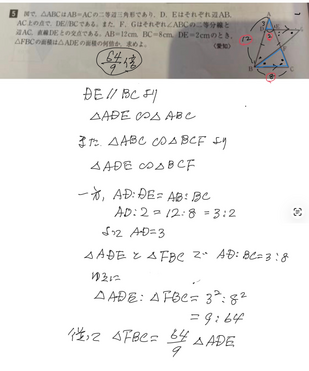 5 図で、△ABCはAB=ACの二等辺三角形であり、D、Eはそれぞれ辺AB、
AC上の点で、DE//BCである。また、F、Gはそれぞれ∠ABCの二等分線と
辺AC、直線DEとの交点である。AB=12cm、BC=8cm、DE=2cmのとき、
△FBCの面積は△ADEの面積の何倍か、求めよ。
〈愛知〉
64/9倍
A
3
12
2
B
C
8
DE//BCより
△ADE∽△ABC
また △ABC∽△BCFより
△ADE∽△BCF
一方, AD:DE=AB:BC
AD:2=12:8=3:2
よって AD=3
△ADEと△FBCで AD:BC=3:8
ゆえに
△ADE:△FBC=3²:8²
=9:64
従って △FBC=64/9△ADE